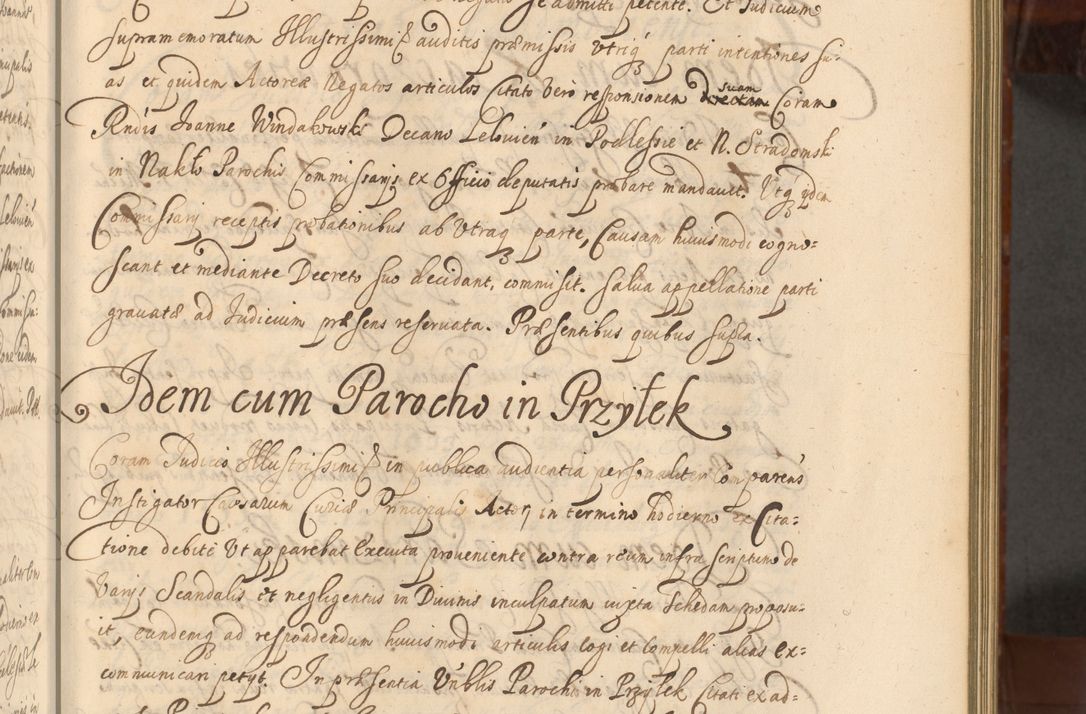 se admitti petente. Et Judicium
supramemoratum Illustrissimi &c auditis præmissis Vtriq3 parti intentiones su-
as et quidem Actoreæ Negatos articulos Citato vero responsionem suam directam Coram
Rndis Joanne Windakowski Decano Lelovien in Podlessie et N. Stradomski
in Nakło Parochis Commissarijs ex Officio deputatis probare mandavit. Vtq3 ijdem
Commissarij receptis probationibus ab Vtraq3 parte, Causam huiusmodi cogno=
scant et mediante Decreto suo decidant, commisit. Salva appellatione parti
gravatæ ad Judicium præsens reservata. Præsentibus quibus supra.
Idem cum Parocho in Przyłek
Coram Judicio Illustrissimi &c in publica audientia personaliter Comparens
Instigator Causarum Curiæ Principalis Actor, in termino hodierno ex Cita=
tione debite Vt apparebat Executa proveniente contra reum infra scriptum de
Varijs Scandalis et negligentijs in Divinis inculpatum iuxta Schedam proposu-
it, eundemq3 ad respondendum huiusmodi articulis cogi et compelli alias ex=
communicari petijt. In præsentia Vnblis Parochi in Przyłek Citati ex ad=